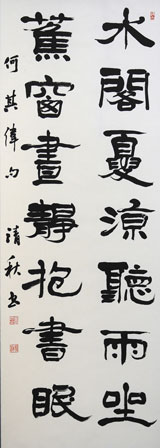 水閣夏涼聽雨坐
蕉窗晝靜抱書眠
何其偉句 清秋书